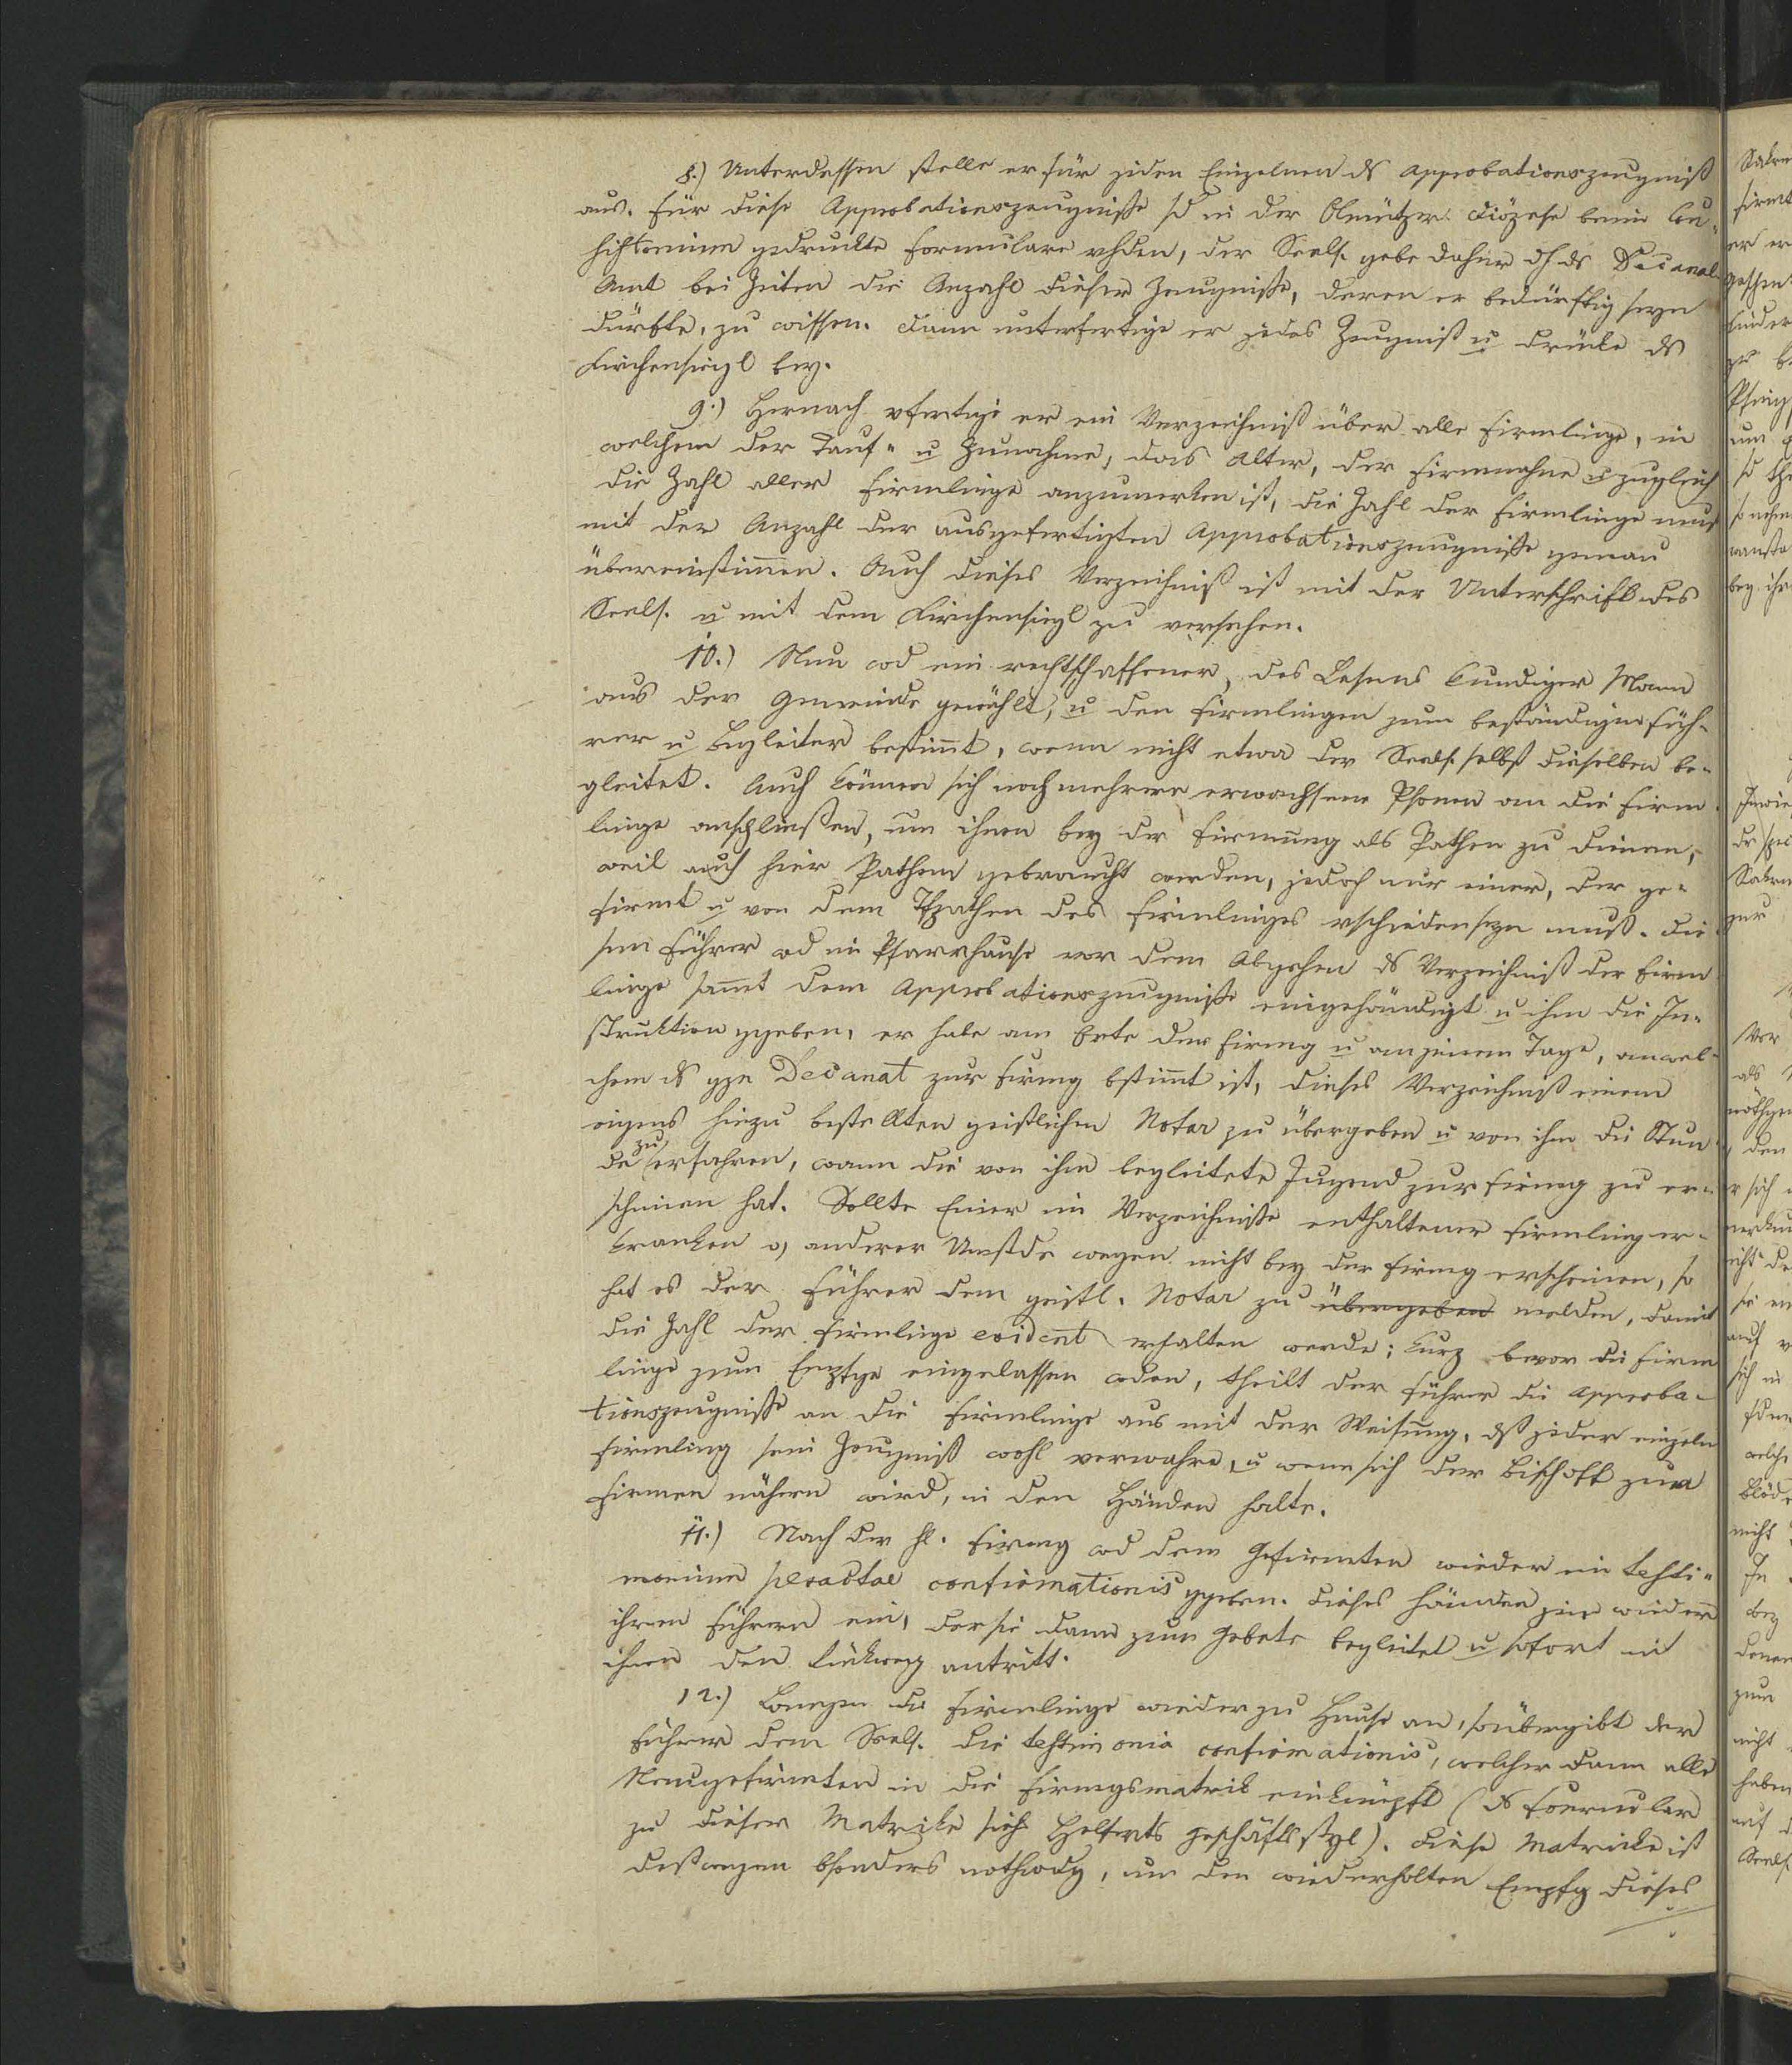 8.) Unterdessen stelle er für jeden Einzelnen ds Approbationszeugniß
aus. Für diese Approbationszeugniße sd in der Olmützer Diözese beim Con-
sistorium gedruckte Formulare vhden, der Seels. gebe daher dh ds Decanal-
Amt bei Zeiten die Anzahl dieser Zeugniße, deren er bedürftig seyn
dürfte, zu wissen. Dann unterfertige er jedes Zeugniß u drücke ds
Kirchensiegl bey.
9.) Hernach vfertige er ein Verzeichniß über alle Firmlinge, in
welchem der Tauf- u Zunahme, das Alter, der Firmnahme u zugleich
die Zahl aller Firmlinge anzumerken ist, die Zahl der Firmlinge muß
mit der Anzahl der ausgefertigten Approbationszeugniße genau
übereinstimmen. Auch dieses Verzeichniß ist mit der Unterschrift des
Seels. u mit dem Kirchensiegl zu versehen.
10.) Nun wd ein rechtschaffener, des Lesens kundiger Mann
aus der Gemeinde gewählt, u den Firmlingen zum beständigen Füh-
rer u Begleiter bestimt, wenn nicht etwa der Seels. selbst dieselben be-
gleitet. Auch können sich noch mehrere erwachsene Psonen an die Firm-
linge anschließen, um ihnen bey der Firmung als Pathen zu dienen,
weil auch hier Pathen gebraucht werden, jedoch nur einer, der ge-
firmt u von dem Tfpathen des Firmlinges vschieden seyn muß. Die-
sem Führer wd im Pfarrhause vor dem Abgehen ds Verzeichniß der Firm
linge samt dem Approbationszeugniße eingehändigt u ihm die In-
struktion ggeben, er habe am Orte der Firmg u an jenem Tage, an wel-
chem ds gze Decanat zur Firmg bstimt ist, dieses Verzeichniß einem
eigens hiezu bestellten geistlichen Notar zu übergeben u von ihm die Stun-
de zu erfahren, wann die von ihm begleitete Jugend zur Firmg zu er-
scheinen hat. Sollte Einer im Verzeichniße enthaltener Firmling er-
kranken o) anderer Umstde wegen nicht bey der Firmg erscheinen, so
hat es der Führer dem geistl. Notar zu übergeben melden, damit
die Zahl der Firmlinge evident erhalten werde; kurz bevor die Firm
linge zum Empfge eingelassen wden, theilt der Führer die Approba-
tionszeugniße an die Firmlinge aus mit der Weisung, dß jeder einzeln
Firmling sein Zeugniß wohl verwahre, u wenn sich der Bischoff zum
Firmen nähern wird, in den Händen halte.
11.) Nach der hl. Firmg wd dem Gefirmten wieder ein testi-
monium peractae confirmationis ggeben. Dieses händen sie wieder
ihrem Führern ein, der sie dann zum Gebete begleitet u sofort mit
ihnen den Rückweg antritt.
12.) Langen die Firmlinge wieder zu Hause an, so übergibt der
Führer dem Seels. die testimonia confirmationis, welcher dann alle
Neugefirmten in die Firmgsmatrik einknüpft (ds Formular
zu dieser Matrike sieh Helferts Geschäftsstyl). Diese Matricke ist
deßwegen bsonders nothwdg, um den wiederholten Empfg dieses